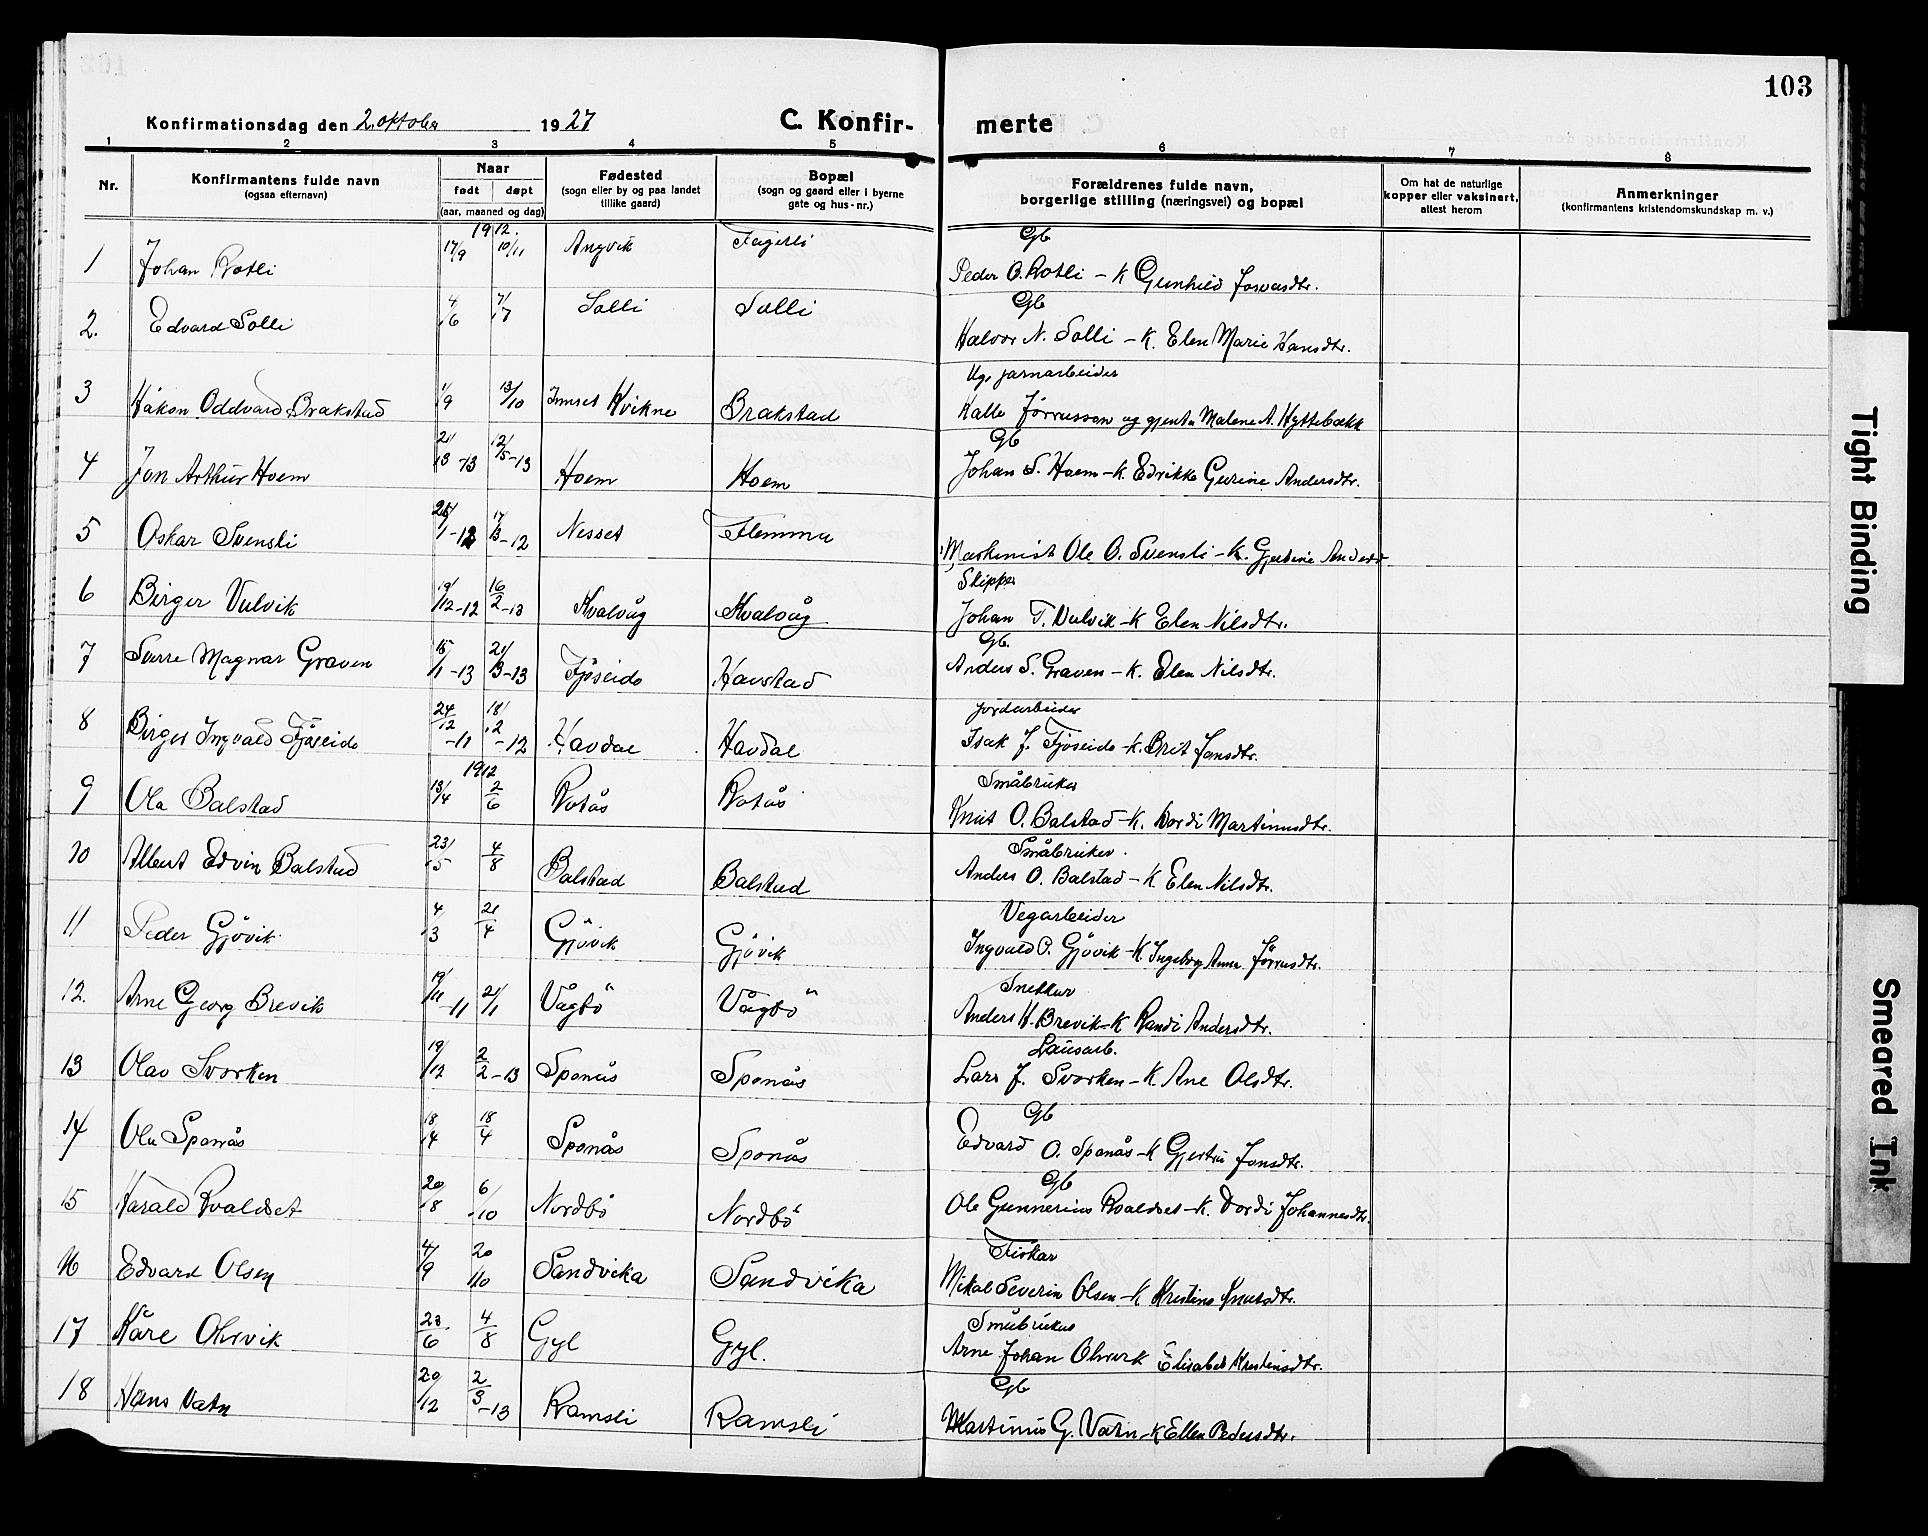 103
Konfirmationsdag den 2. oktober 1927 C. Konfirmerte
1 2 3 4 5 6 7 8
Nr. Konfirmantens fulde navn (ogsaa efternavn) Naar født døpt (aar, maaned og dag) Fødested (sogn eller by og paa landet tillike gaard) Bopæl (sogn og gaard eller i byerne gate og hus-nr.) Forældrenes fulde navn, borgerlige stilling (næringsvei) og bopæl Om hat de naturlige kopper eller vaksinert, attest herom Anmerkninger (konfirmantens kristendomskundskap m. v.)
1912. Gb
1 Johan Rotli 17/9 10/11 Angvik Fagerli Peder O. Rotli - K Gunhild
Gb
2. Edvard Solli 4/6 7/7 Solli Solli Halvor N. Solli - K. Elen Marie Hansdtr.
Ug. jarnarbeider
3 Håkon Oddvard Brakstad 1/9 13/10 Innset Kvikne Brakstad Kalle Jörrusson og gjenta Malene A. Hyttebakk
Gb
4 Jon Arthur Hoem 21/3-13 12/5-13 Hoem Hoem Johan S. Hoem - K. Edrikke Gurine Andersdtr.
5 Oskar Svensli 1-12 17/3-12 Nesset Flemma Maskinist Ole O. Svensli - K.
Skipper
6 Birger Vulvik 19/12-12 16/2-13 Kvalvåg Kvalvåg Johan T. Vulvik - K Elen Nilsdtr.
Gb.
7 Sverre Magnar Graven 15/1-13 21/3-13 Fjöseide Havstad Anders S. Graven - K. Elen Nilsdtr.
jordarbeider
8 Birger Ingvald Fjöseide 24/12-11 18/2-12 Havdal Havdal Isak J. Fjöseide - K. Brit Jonsdtr.
1912 Småbruker
9 Ola Balstad 13/4 2/6 Rotås Rotås Knut O. Balstad - K. Dordi Martinusdtr.
Småbruker.
10 Albert Edvin Balstad 23/5 4/8 Balstad Balstad Anders O. Balstad - K Elen Nilsdtr.
Vegarbeider
11 Peder Gjövik 4/3 21/4 Gjövik Gjövik Ingvald P. Gjövik - K. Ingeborg Anna Jörrusdtr.
Snekker
12. Arne Georg Brevik 19/11-11 21/1 Vågbö Vågbö Anders H. Brevik - K Randi Andersdtr.
Lausarb.
13 Olav Svorken 19/12 2/2-13 Sponås Sponås Lars J. Svorken - K Ane Olsdtr.
Gb
14 Ola Sponås 18/4 Sponås Sponås Edvard O. Sponås - K Gjertru Jonsdtr.
Gb
15 Harald Roaldset 20/8 6/10 Nordbö Nordbö Ole Gunnerius Roaldset - K. Dordi Johannesdtr.
Fiskar
16 Edvard Olsen 4/9 20/10 Sandvika Sandvika Mikal Severin Olsen - K Kristine Knutsdtr.
Småbruker
17 Kåre Ohrvik 23/6 4/8 Gyl Gyl. Arne Johan Ohrvik Elisabet Kristensdtr.
Gb
18 Hans Vatn 29/12 2/3-13 Ramsli Ramsli Martinus G. Vatn - K Ellen Pedersdtr.
Tight Binding
Smeared Ink